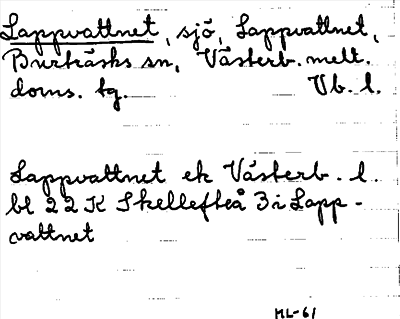 Lappvattnet, sjö, Lappvattnet,
Burträsks sn, Västerb. melt.
doms. tg. Vb. l.
Lappvattnet ek Västerb. l.
bl 22 K Skellefteå 3 i Lapp-
vattnet
ML-61